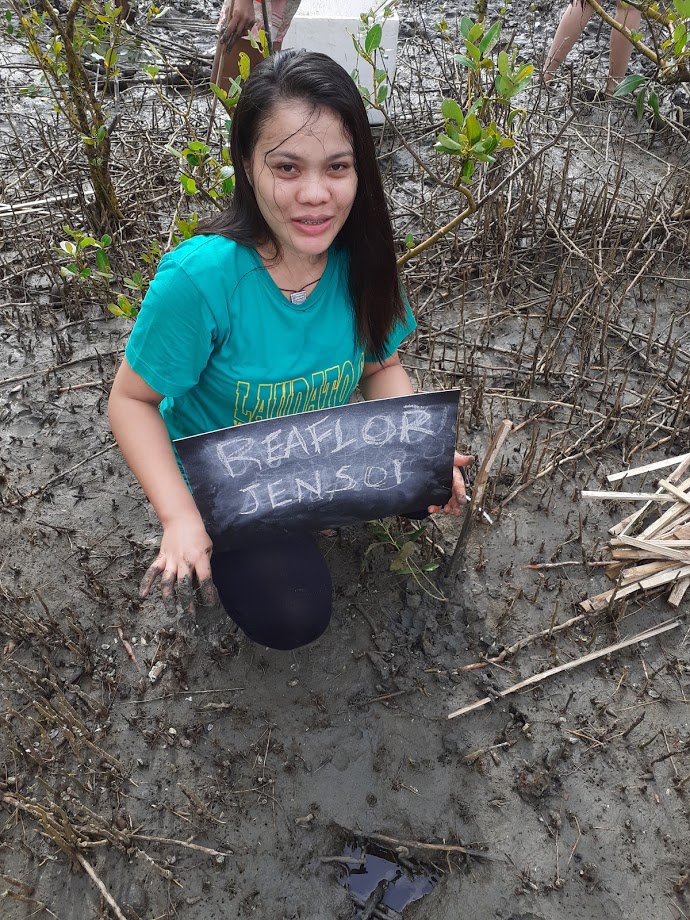 LAUDATO
REAFLOR
JENSOI